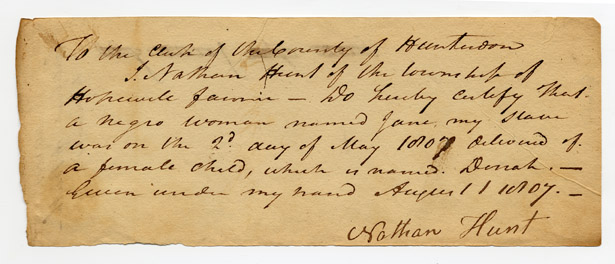 To the Clerk of the County of Hunterdon
I Nathan Hunt of the township of
Hopewell farmer — Do hereby certify that
a negro woman named Jane my slave
was on the 2d day of May 1807 delivered of
a female child, which is named Dinah. —
Given under my hand August 1 1807. —
Nathan Hunt